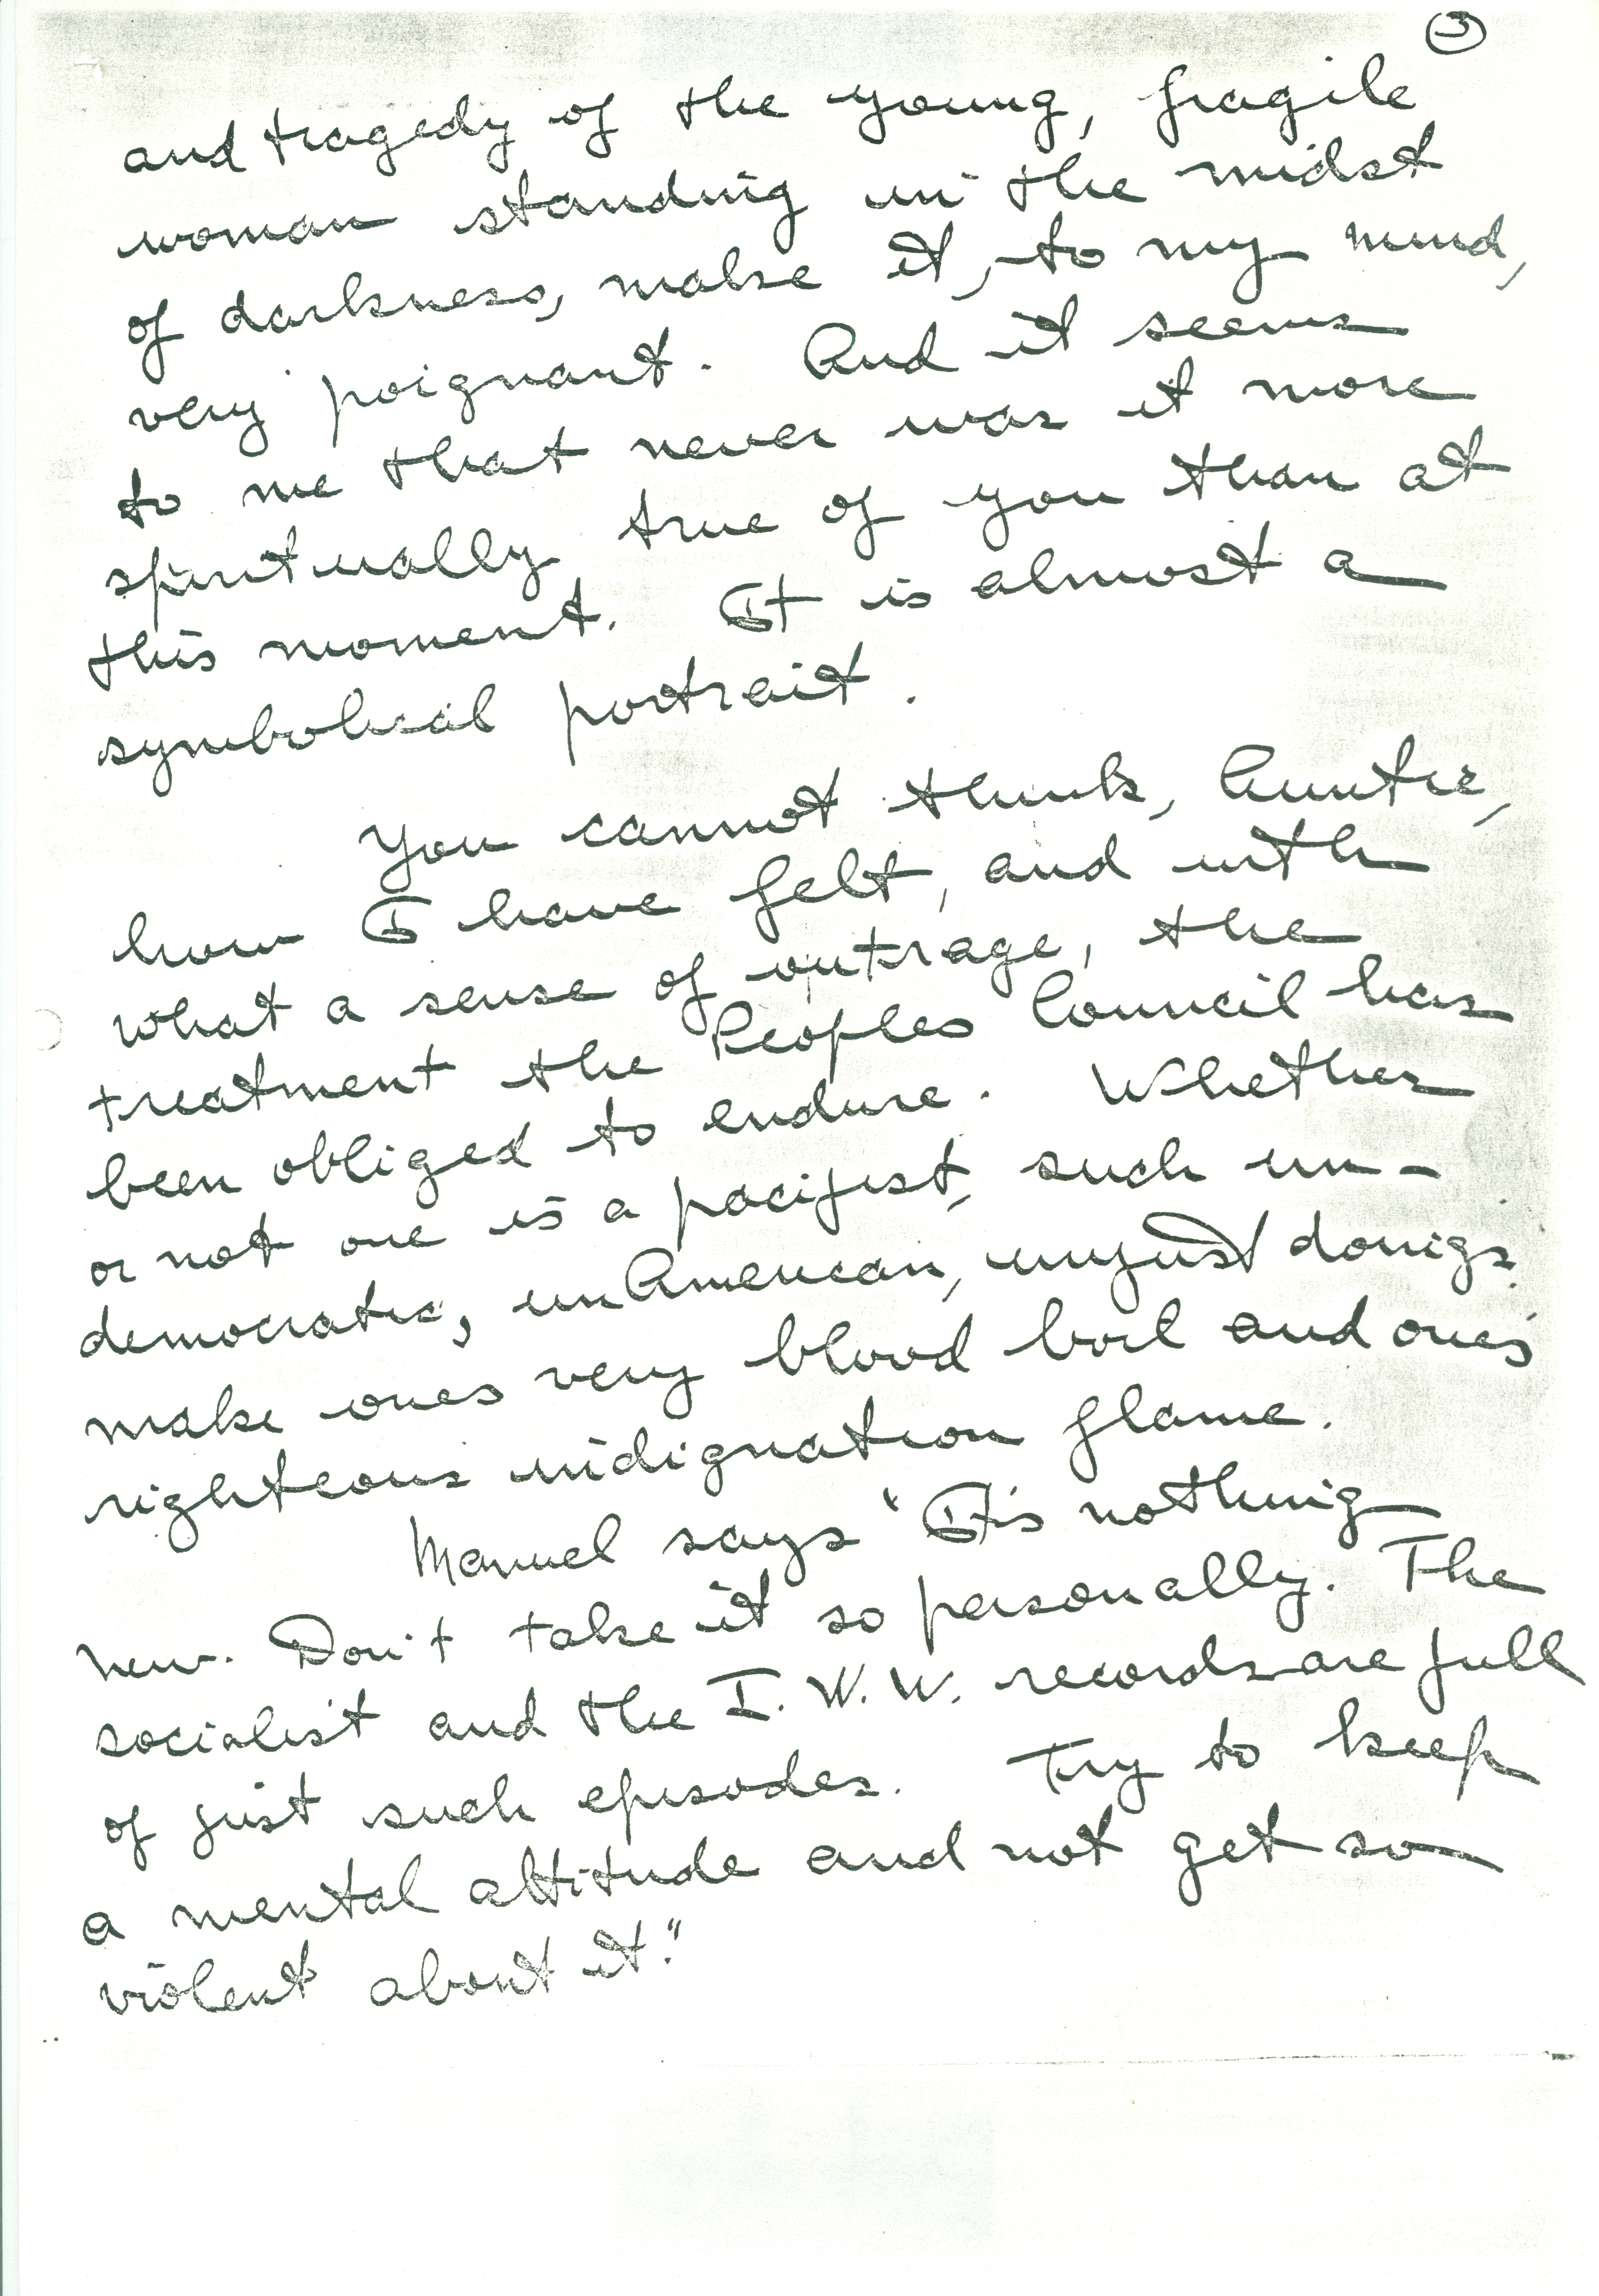 3
and tragedy of the young, fragile
woman standing in the midst
of darkness, make it, to my mind,
very poignant. And it seems
to me that never was it more
spiritually true of you than at
this moment. It is almost a
symbolical portrait.
You cannot think, Auntie,
how I have felt, and with
what a sense of outrage, the
treatment the Peoples Council has
been obliged to endure. Whether
or not one is a pacifist, such un-
democratic, unAmerican, unjust doings
make ones very blood boil and one's
righteous indignation flame.
Manuel says "It's nothing
new. Don't take it so personally. The
socialist and the I. W. W. records are full
of just such episodes. Try to keep
a mental attitude and not get so
violent about it."